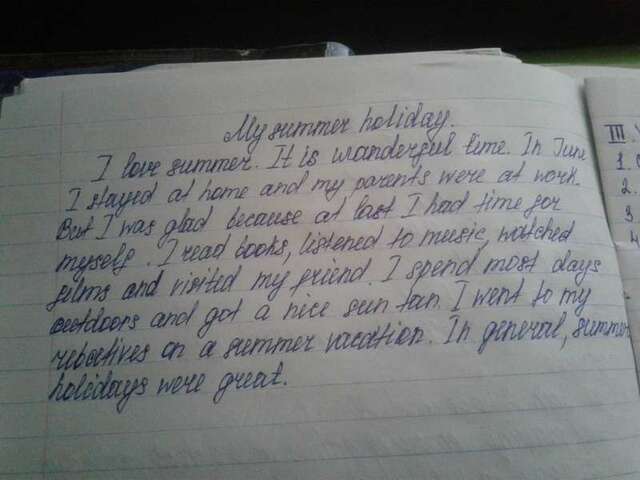 My summer holiday.
I love summer. It is wonderful time. In June
I stayed at home and my parents were at work.
But I was glad because at last I had time for
myself. I read books, listened to music watched
films and visited my friend. I spend most days
outdoors and got a nice sun tan. I went to my
relatives on a summer vacation. In general, summer
holidays were great.
III
1.
2
3
4